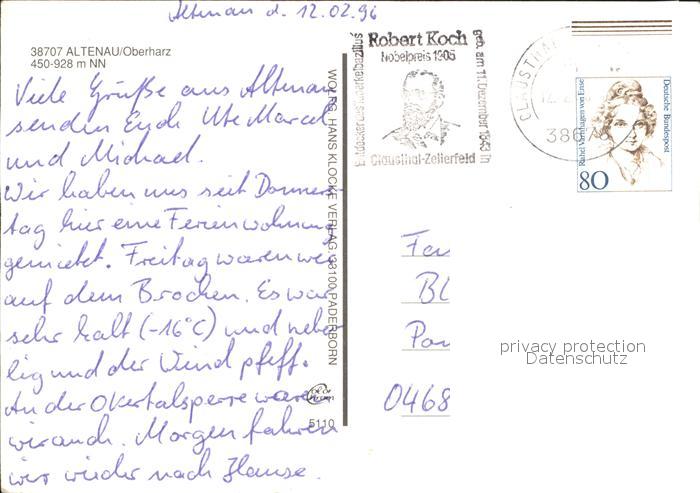 Altenau d. 12.02.96
38707 ALTENAU/Oberharz
450-928 m NN
Viele Grüße aus Altenau
senden Euch Ute Marcel
und Michael.
Wir haben uns seit Donners-
tag hier eine Ferienwohnung
gemietet. Freitag waren wir
auf dem Brocken. Es war
sehr kalt (-16°C) und neb-
lig und der Wind pfeff.
An der Okertalsperre waren
wir auch. Morgen fahren
wir wieder nach Hause.
WOLFG. HANS KLOCKE VERLAG, 33100 PADERBORN
5110
Robert Koch
Nobelpreis 1905
geb. am 11. Dezember 1843 in
Clausthal-Zellerfeld
CLAUSTHAL
3867
Deutsche Bundespost
Rahel Varnhagen von Ense
80
Fa
BL
Pa
0468
privacy protection
Datenschutz